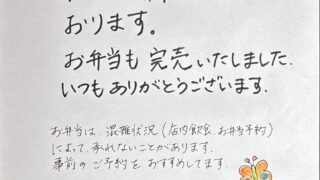 おります。
お弁当も 完売いたしました.
いつもありがとうございます.
お弁当は、混雑状況(店内飲食、お弁当予約)
によって、承れないことがあります。
事前の ご予約を おすすめしてます.